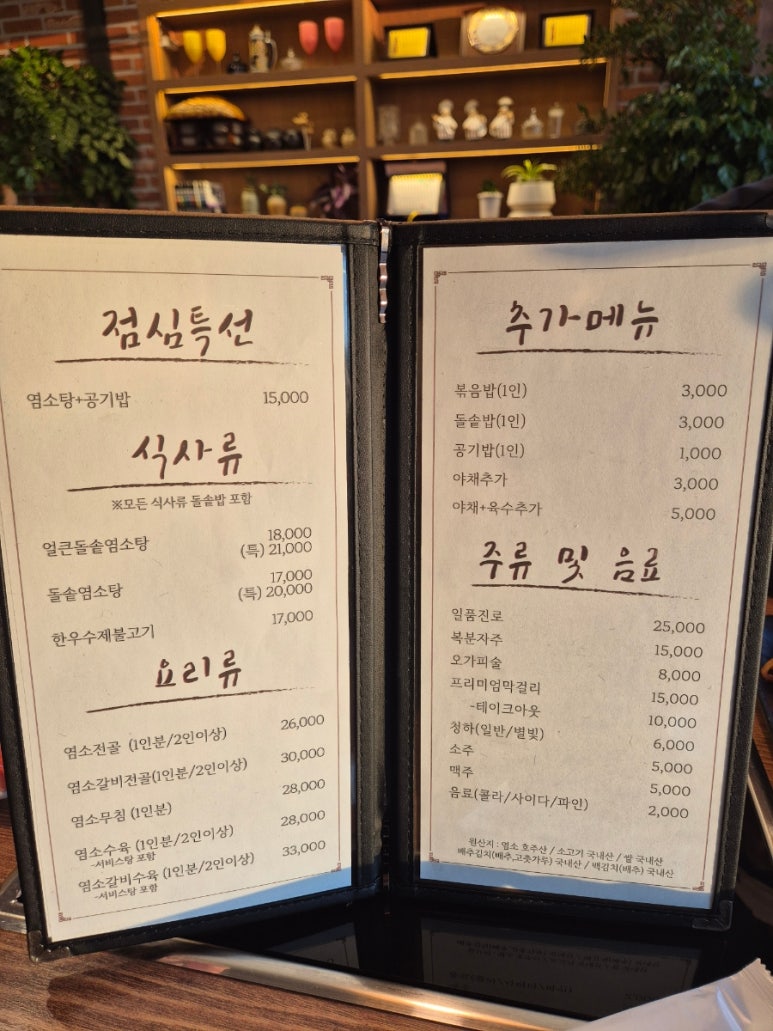 점심특선
염소탕+공기밥 15,000
식사류
※모든 식사류 돌솥밥 포함
얼큰돌솥염소탕 18,000
(특) 21,000
돌솥염소탕 17,000
(특) 20,000
한우수제불고기 17,000
요리류
염소전골 (1인분/2인이상) 26,000
염소갈비전골(1인분/2인이상) 30,000
염소무침 (1인분) 28,000
염소수육 (1인분/2인이상) 28,000
-서비스탕 포함
염소갈비수육 (1인분/2인이상) 33,000
-서비스탕 포함
추가메뉴
볶음밥(1인) 3,000
돌솥밥(1인) 3,000
공기밥(1인) 1,000
야채추가 3,000
야채+육수추가 5,000
주류 및 음료
일품진로 25,000
복분자주 15,000
오가피술 8,000
프리미엄막걸리 15,000
-테이크아웃 10,000
청하(일반/별빛) 6,000
소주 5,000
맥주 5,000
음료(콜라/사이다/파인) 2,000
원산지 : 염소 호주산 / 소고기 국내산 / 쌀 국내산
배추김치(배추,고춧가루) 국내산 / 백김치(배추) 국내산